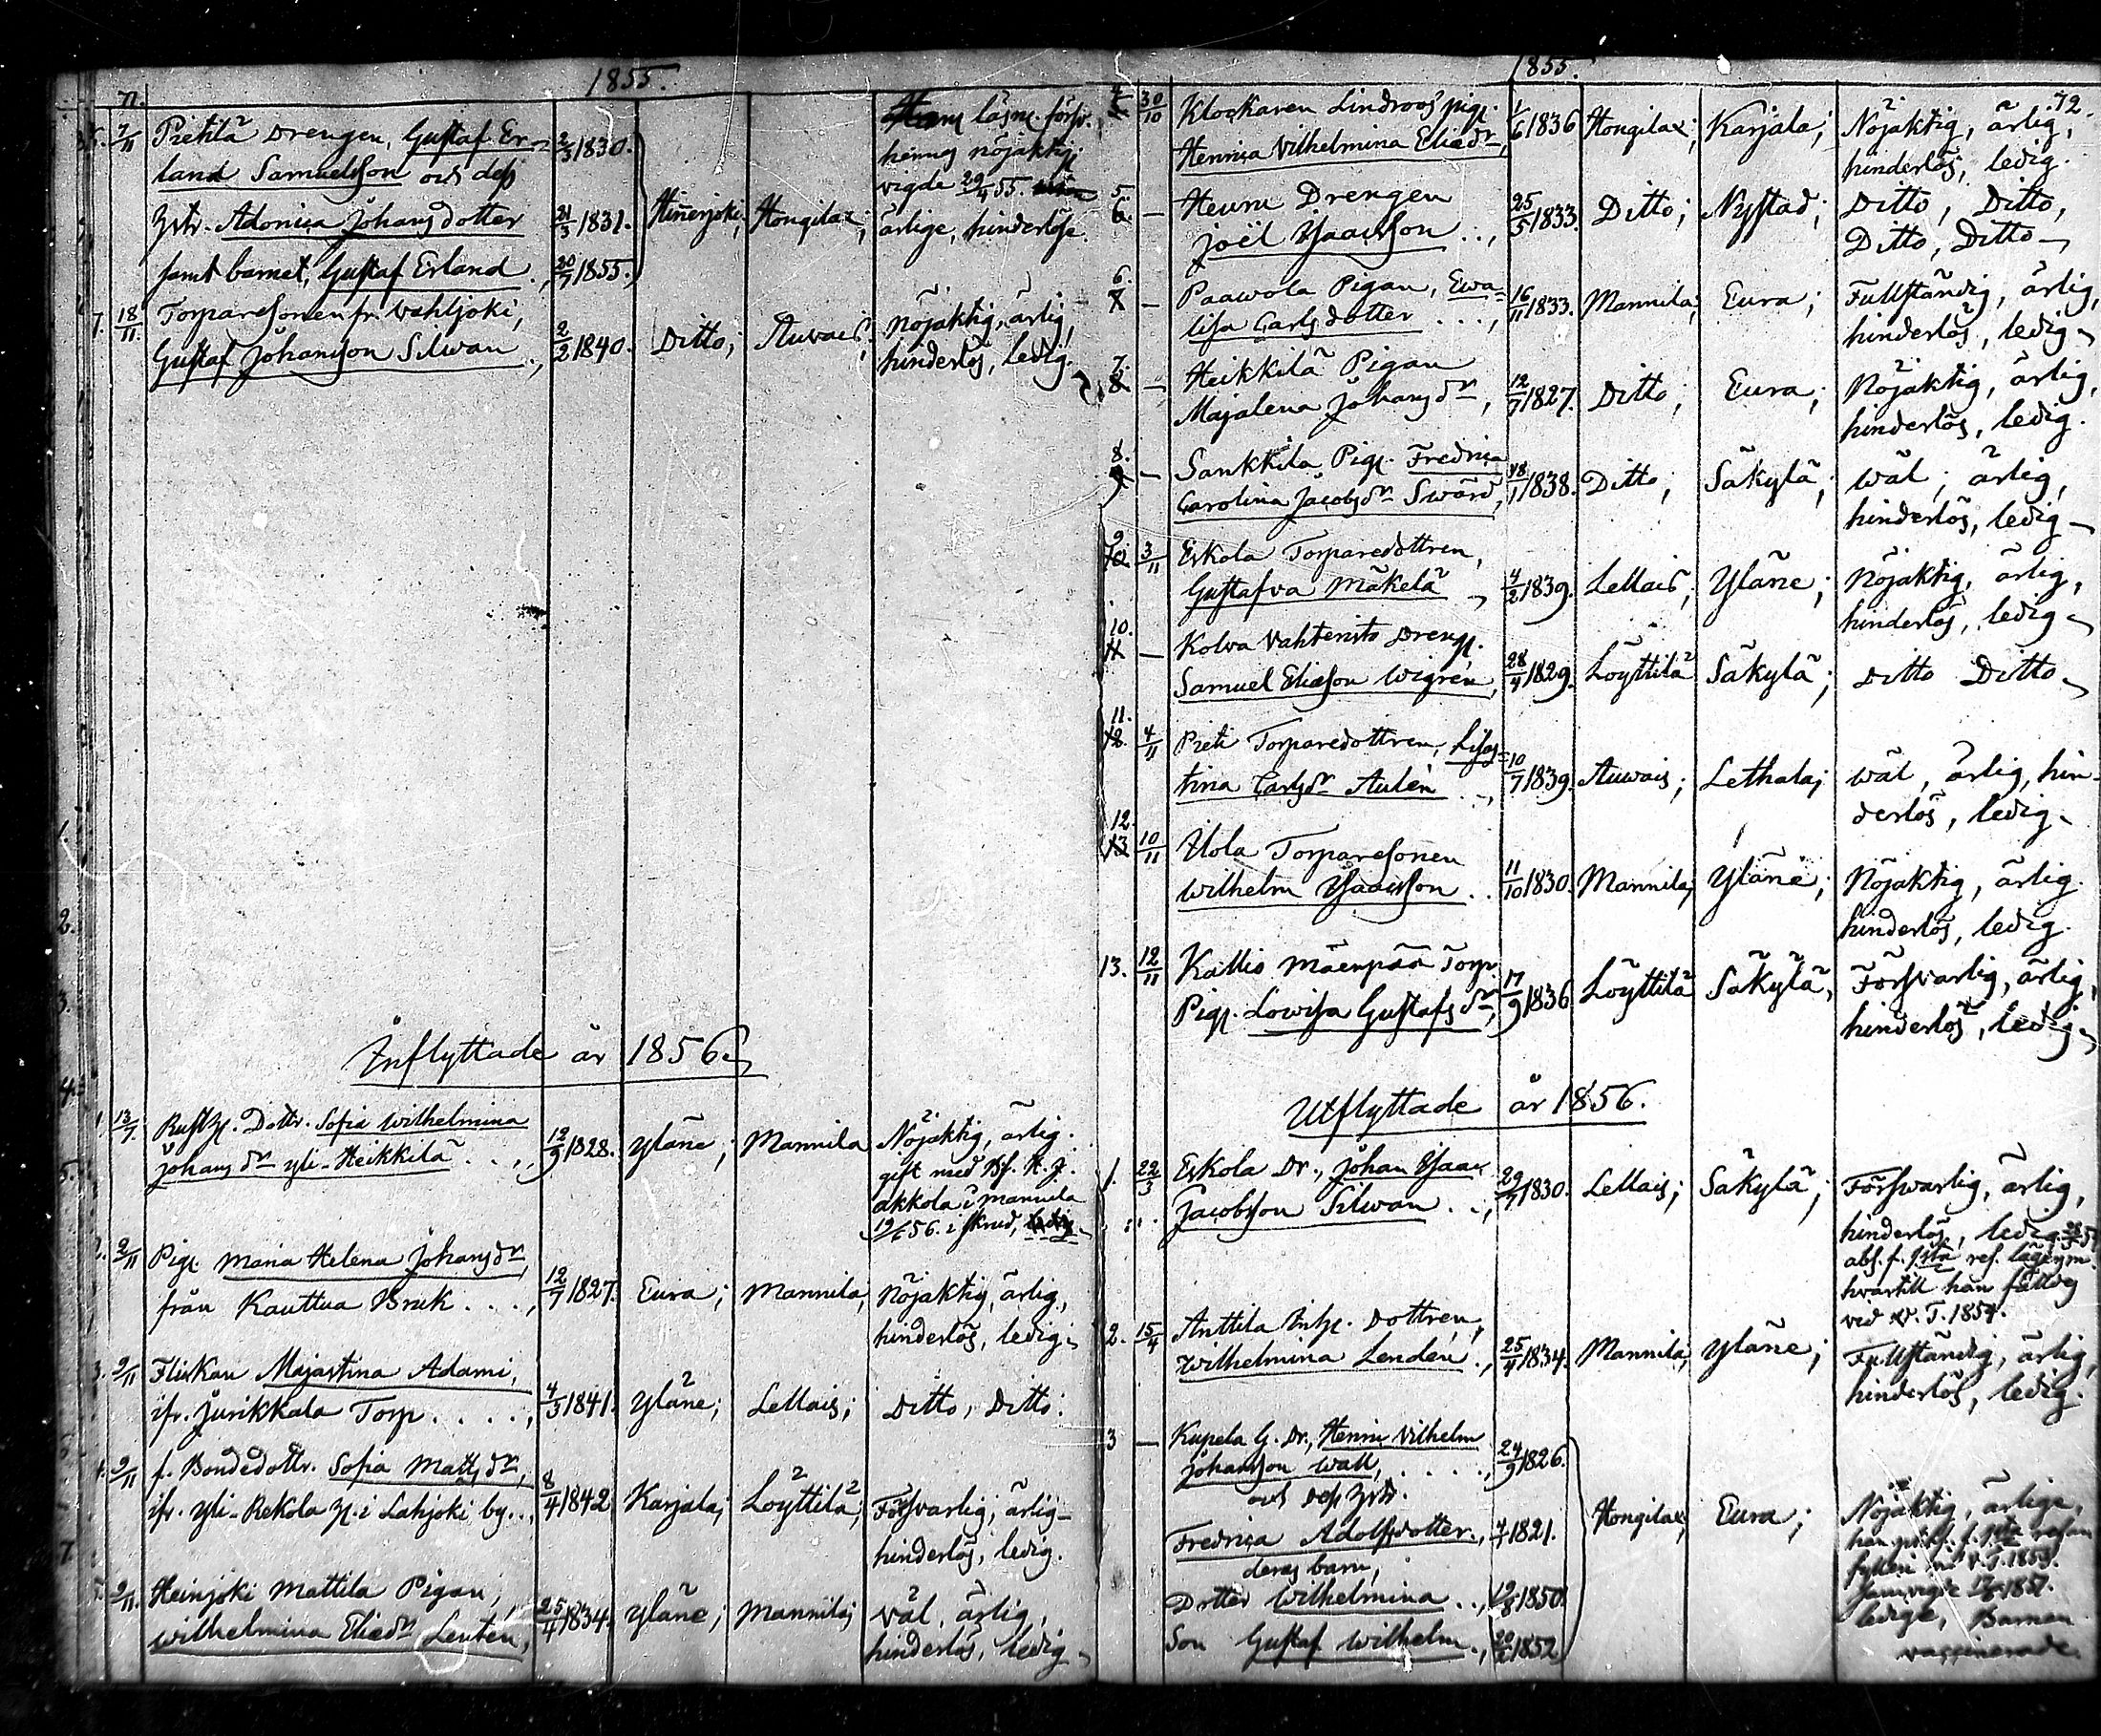 1855.
71.
7/11 Pietilä Drengen, Gustaf Er-
land Samuelsson och dess 2/3 1830.
hstr. Adonica Johansdotter 21/3 1831. Hinerjoki; Hongilax;
samt barnet, Gustaf Erland., 20/7 1855.
läsn. försv.
hennes nöjaktig
vigde 29/4 55.
ärlige, hinderlöse.
7. 18/11 Torparesonen fr. Vahljoki,
Gustaf Johansson Silwan., 2/2 1840. Ditto; Auvais;
Nöjaktig, ärlig,
hinderlös, ledig.
Inflyttade år 1856.
1. 13/7. Rusth. Dottr. Sofia Wilhelmina
Johansdr Yli-Heikkilä..., 12/9 1828. Yläne; Mannila
Nöjaktig, ärlig.
gift med Bf. K. J.
akkola i Mannila
19/6 56. i skrud,
2. 2/11 Pig. Maria Helena Johansdr,
från Kauttua Bruk..., 12/7 1827. Eura; Mannila;
Nöjaktig, ärlig,
hinderlös, ledig.
3. 9/11 Flickan Majastina Adami,
ifr. Jurikkala Torp...., 4/5 1841. Yläne; Lellais; Ditto, Ditto.
4. 9/11 f. Bondedottr. Sofia Mattsdr,
ifr. Yli-Rekola h. i Lahjoki by.., 8/4 1842 Karjala; Löyttilä;
Försvarlig, ärlig
hinderlös, ledig.
5. 9/11. Heinjoki Mattila Pigan,
Wilhelmina Eliædr Lentén, 25/4 1834. Yläne; Mannila;
väl, ärlig,
hinderlös, ledig
1855.
72.
4 30/10 Klockaren Lindroos pig.
Henrica Vilhelmina Eliædr, 1/6 1836 Hongilax; Karjala;
Nöjaktig, ärlig,
hinderlös, ledig.
5. 6. — Heuru Drengen
Joël Isaacsson.., 25/5 1833. Ditto; Nystad;
Ditto, Ditto,
Ditto, Ditto
6. 7 — Paawola Pigan, Ewa-
lisa Carlsdotter..., 16/11 1833. Mannila; Eura;
Fullständig, ärlig,
hinderlös, ledig
7. 8. — Heikkilä Pigan
Majalena Johansdr, 12/7 1827. Ditto; Eura;
Nöjaktig, ärlig,
hinderlös, ledig.
8. 9 — Sankkila Pig. Fredrica
Carolina Jacobsdr Swärd, 18/1 1838. Ditto; Säkylä;
wäl; ärlig,
hinderlös, ledig
9. 10. 3/11 Eskola Torparedottren,
Gustafva Mäkelä, 4/2 1839. Lellais; Yläne;
Nöjaktig, ärlig,
hinderlös, ledig
10. 11. — Kolva Vahteristo Dreng.
Samuel Eliæson Wigrén, 28/4 1829. Löyttilä Säkylä; Ditto Ditto
11. 12. 4/11 Pieti Torparedottren, Lisas-
tina Carlsdr Aulén.., 10/7 1839. Auvais; Lethala;
wäl, ärlig, hin-
derlös, ledig.
12. 13 10/11 Uola Torparesonen
Wilhelm Isaacsson.. 11/10 1830. Mannila; Yläne;
Nöjaktig, ärlig.
hinderlös, ledig.
13. 12/11 Kallio Mäenpää Torp
Pig. Lowisa Gustafsdr, 17/9 1836 Löyttilä Säkylä,
Försvarlig, ärlig,
hinderlös, ledig.
Utflyttade år 1856.
1. 22/3 Eskola Dr., Johan Isaac
Jacobsson Silwan.., 29/7 1830. Lellais; Säkylä;
Försvarlig, ärlig,
hinderlös, ledig.
hvartill han fälldes
vid W. T. 1854.
2. 15/4 Anttila Inh. Dottren,
Wilhelmina Lenden., 25/4 1834. Mannila; Yläne;
Fullständig, ärlig,
hinderlös, ledig.
3 — Kupela G. Dr., Henric Vilhelm
Johansson Wall,...., 24/9 1826.
och dess hstr.
Fredrica Adolfsdotter., 4/7 1821. Hongilax; Eura;
deras barn,
Dotter Wilhelmina.., 19/8 1850.
Son Gustaf Wilhelm., 20/2 1852
Nöjaktig, ärlige,
ledige, Barnen
vaccinerade.